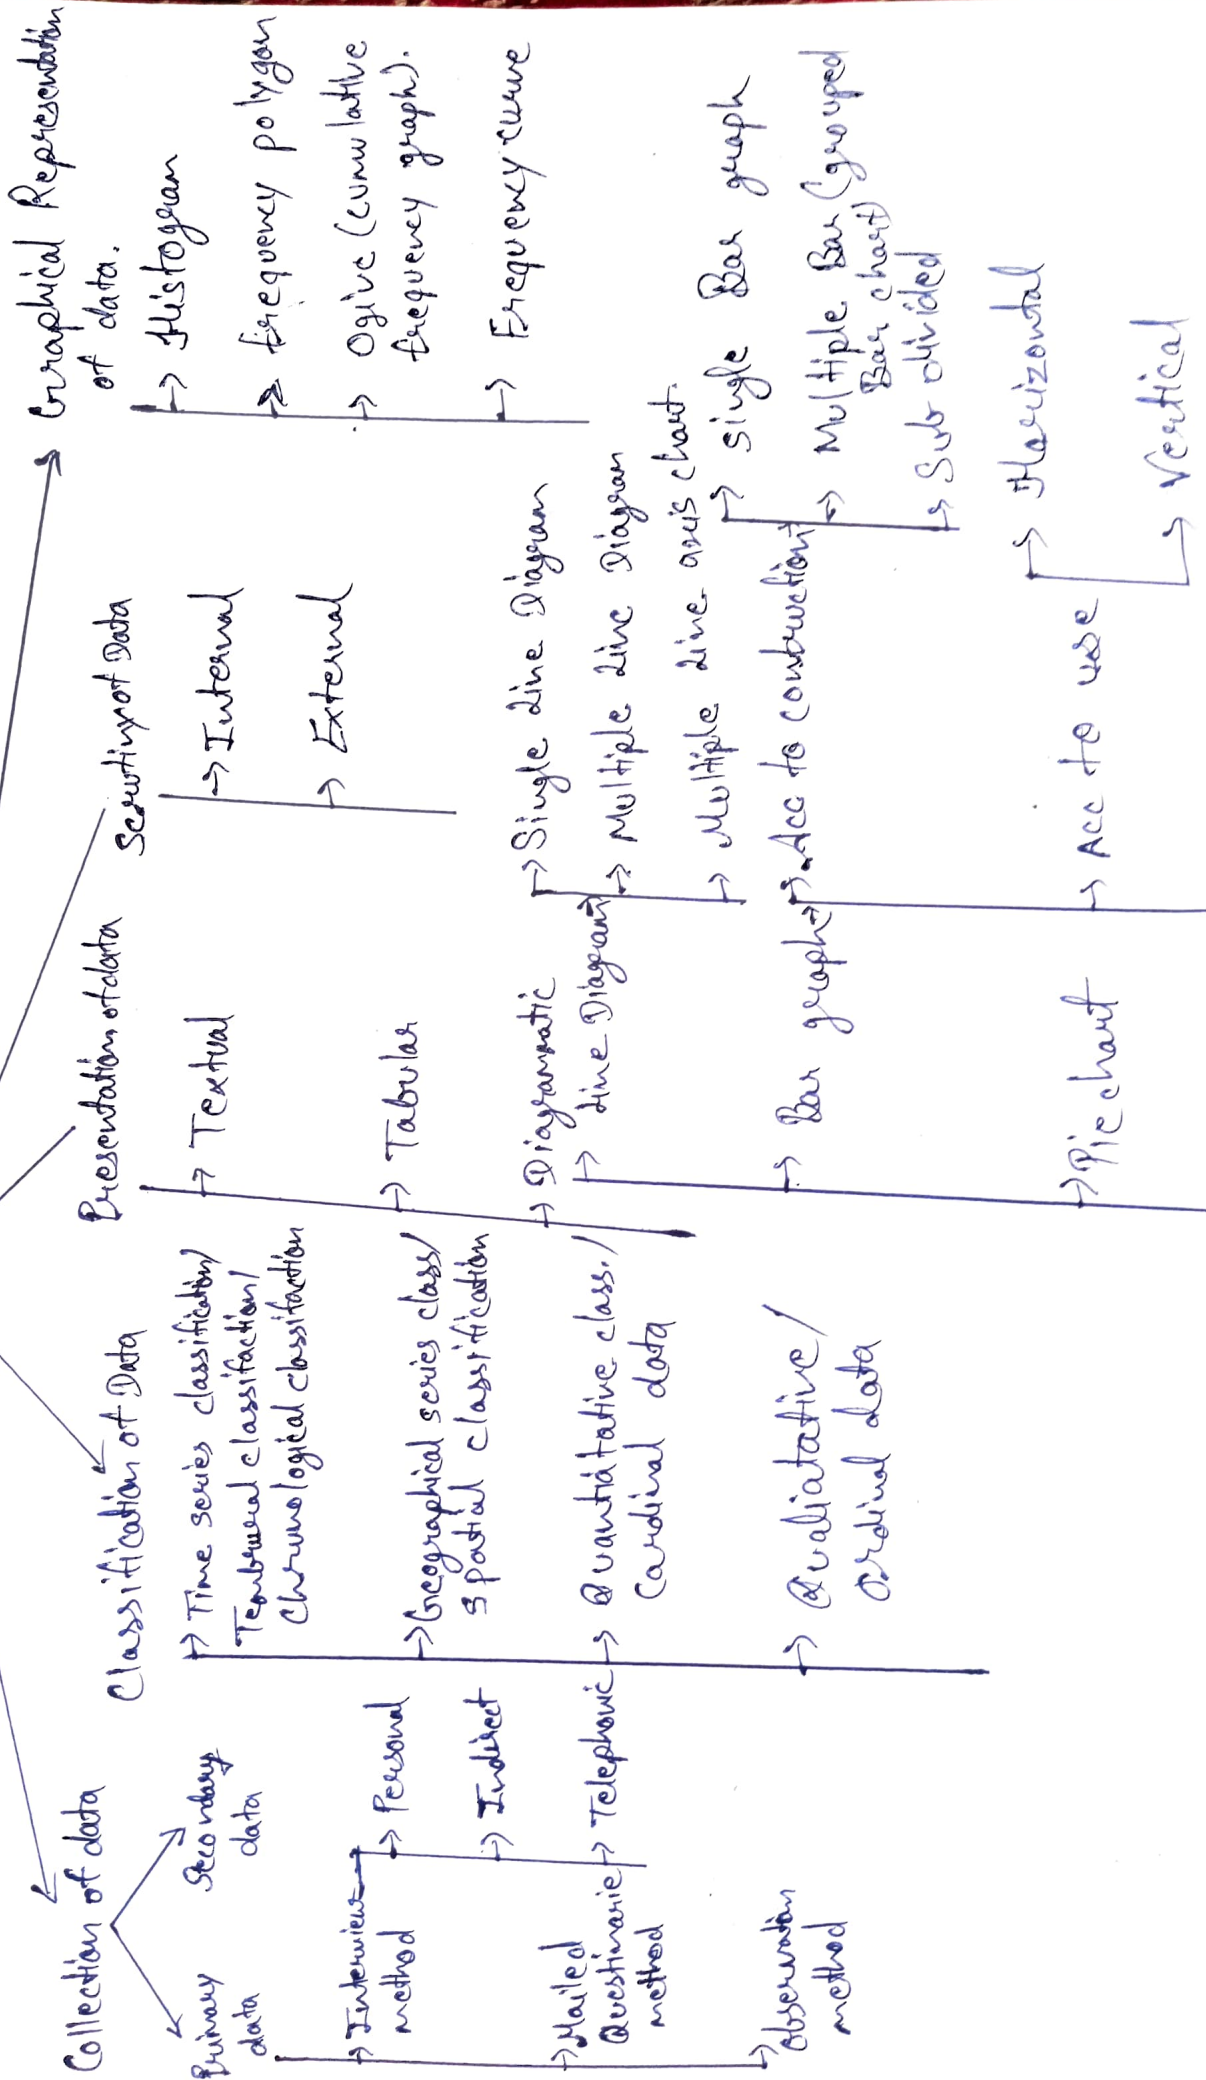 Collection of data
Primary
data
Secondary
data
→ Interview
method
→ Personal
→ Indirect
→ Telephonic
→ Mailed
Questinarie
method
→ Observation
method
Classification of Data
→ Time series classification/
Tembural classifaction/
Chronological classifaction
→ Geographical series class/
Spatial classification
→ Quantitative class./
Cardinal data
→ Qualiatative/
Ordinal data
Presentation of data
→ Textual
→ Tabular
→ Diagrammatic
→ Line Diagram
→ Single Line Diagram
→ Multiple Line Diagram
→ Multiple Line axis chart.
→ Bar graph
→ Acc to construction
→ Single Bar graph
→ Multiple Bar (grouped
Bar chart)
→ Sub divided
→ Acc to use
→ Horizontal
→ Vertical
→ Pie chart
Scrutiny of Data
→ Internal
→ External
Graphical Representation
of data.
→ Histogram
→ frequency polygon
→ Ogive (cumulative
frequency graph).
→ Frequency curve